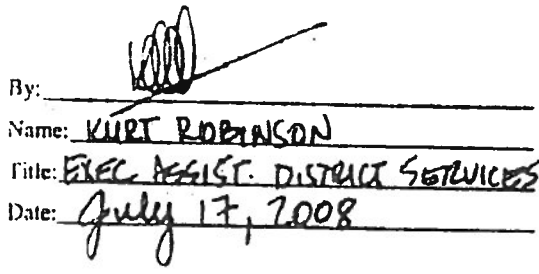 By:
Name: KURT ROBINSON
Title: EXEC. ASSIST. DISTRICT SERVICES
Date: July 17, 2008